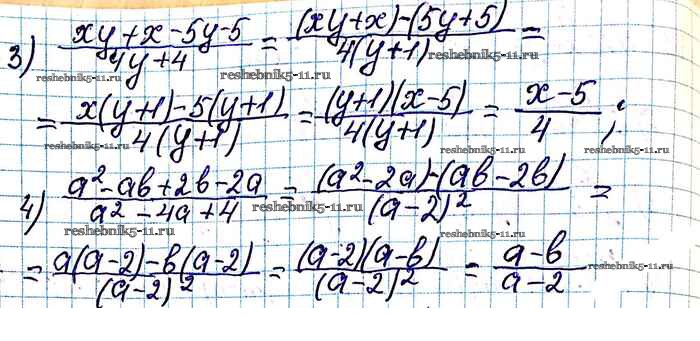 3) (xy + x - 5y - 5)/(4y + 4) = ((xy + x) - (5y + 5))/(4(y + 1)) =
reshebnik5-11.ru reshebnik5-11.ru reshebnik5-11.ru
= (x(y + 1) - 5(y + 1))/(4(y + 1)) = ((y + 1)(x - 5))/(4(y + 1)) = (x - 5)/4 ;
reshebnik5-11.ru reshebnik5-11.ru reshebnik5-11.ru
4) (a² - ab + 2b - 2a)/(a² - 4a + 4) = ((a² - 2a) - (ab - 2b))/((a - 2)²) =
reshebnik5-11.ru reshebnik5-11.ru
reshebnik5-11.ru reshebnik5-11.ru
= (a(a - 2) - b(a - 2))/((a - 2)²) = ((a - 2)(a - b))/((a - 2)²) = (a - b)/(a - 2)
reshebnik5-11.ru reshebnik5-11.ru reshebnik5-11.ru